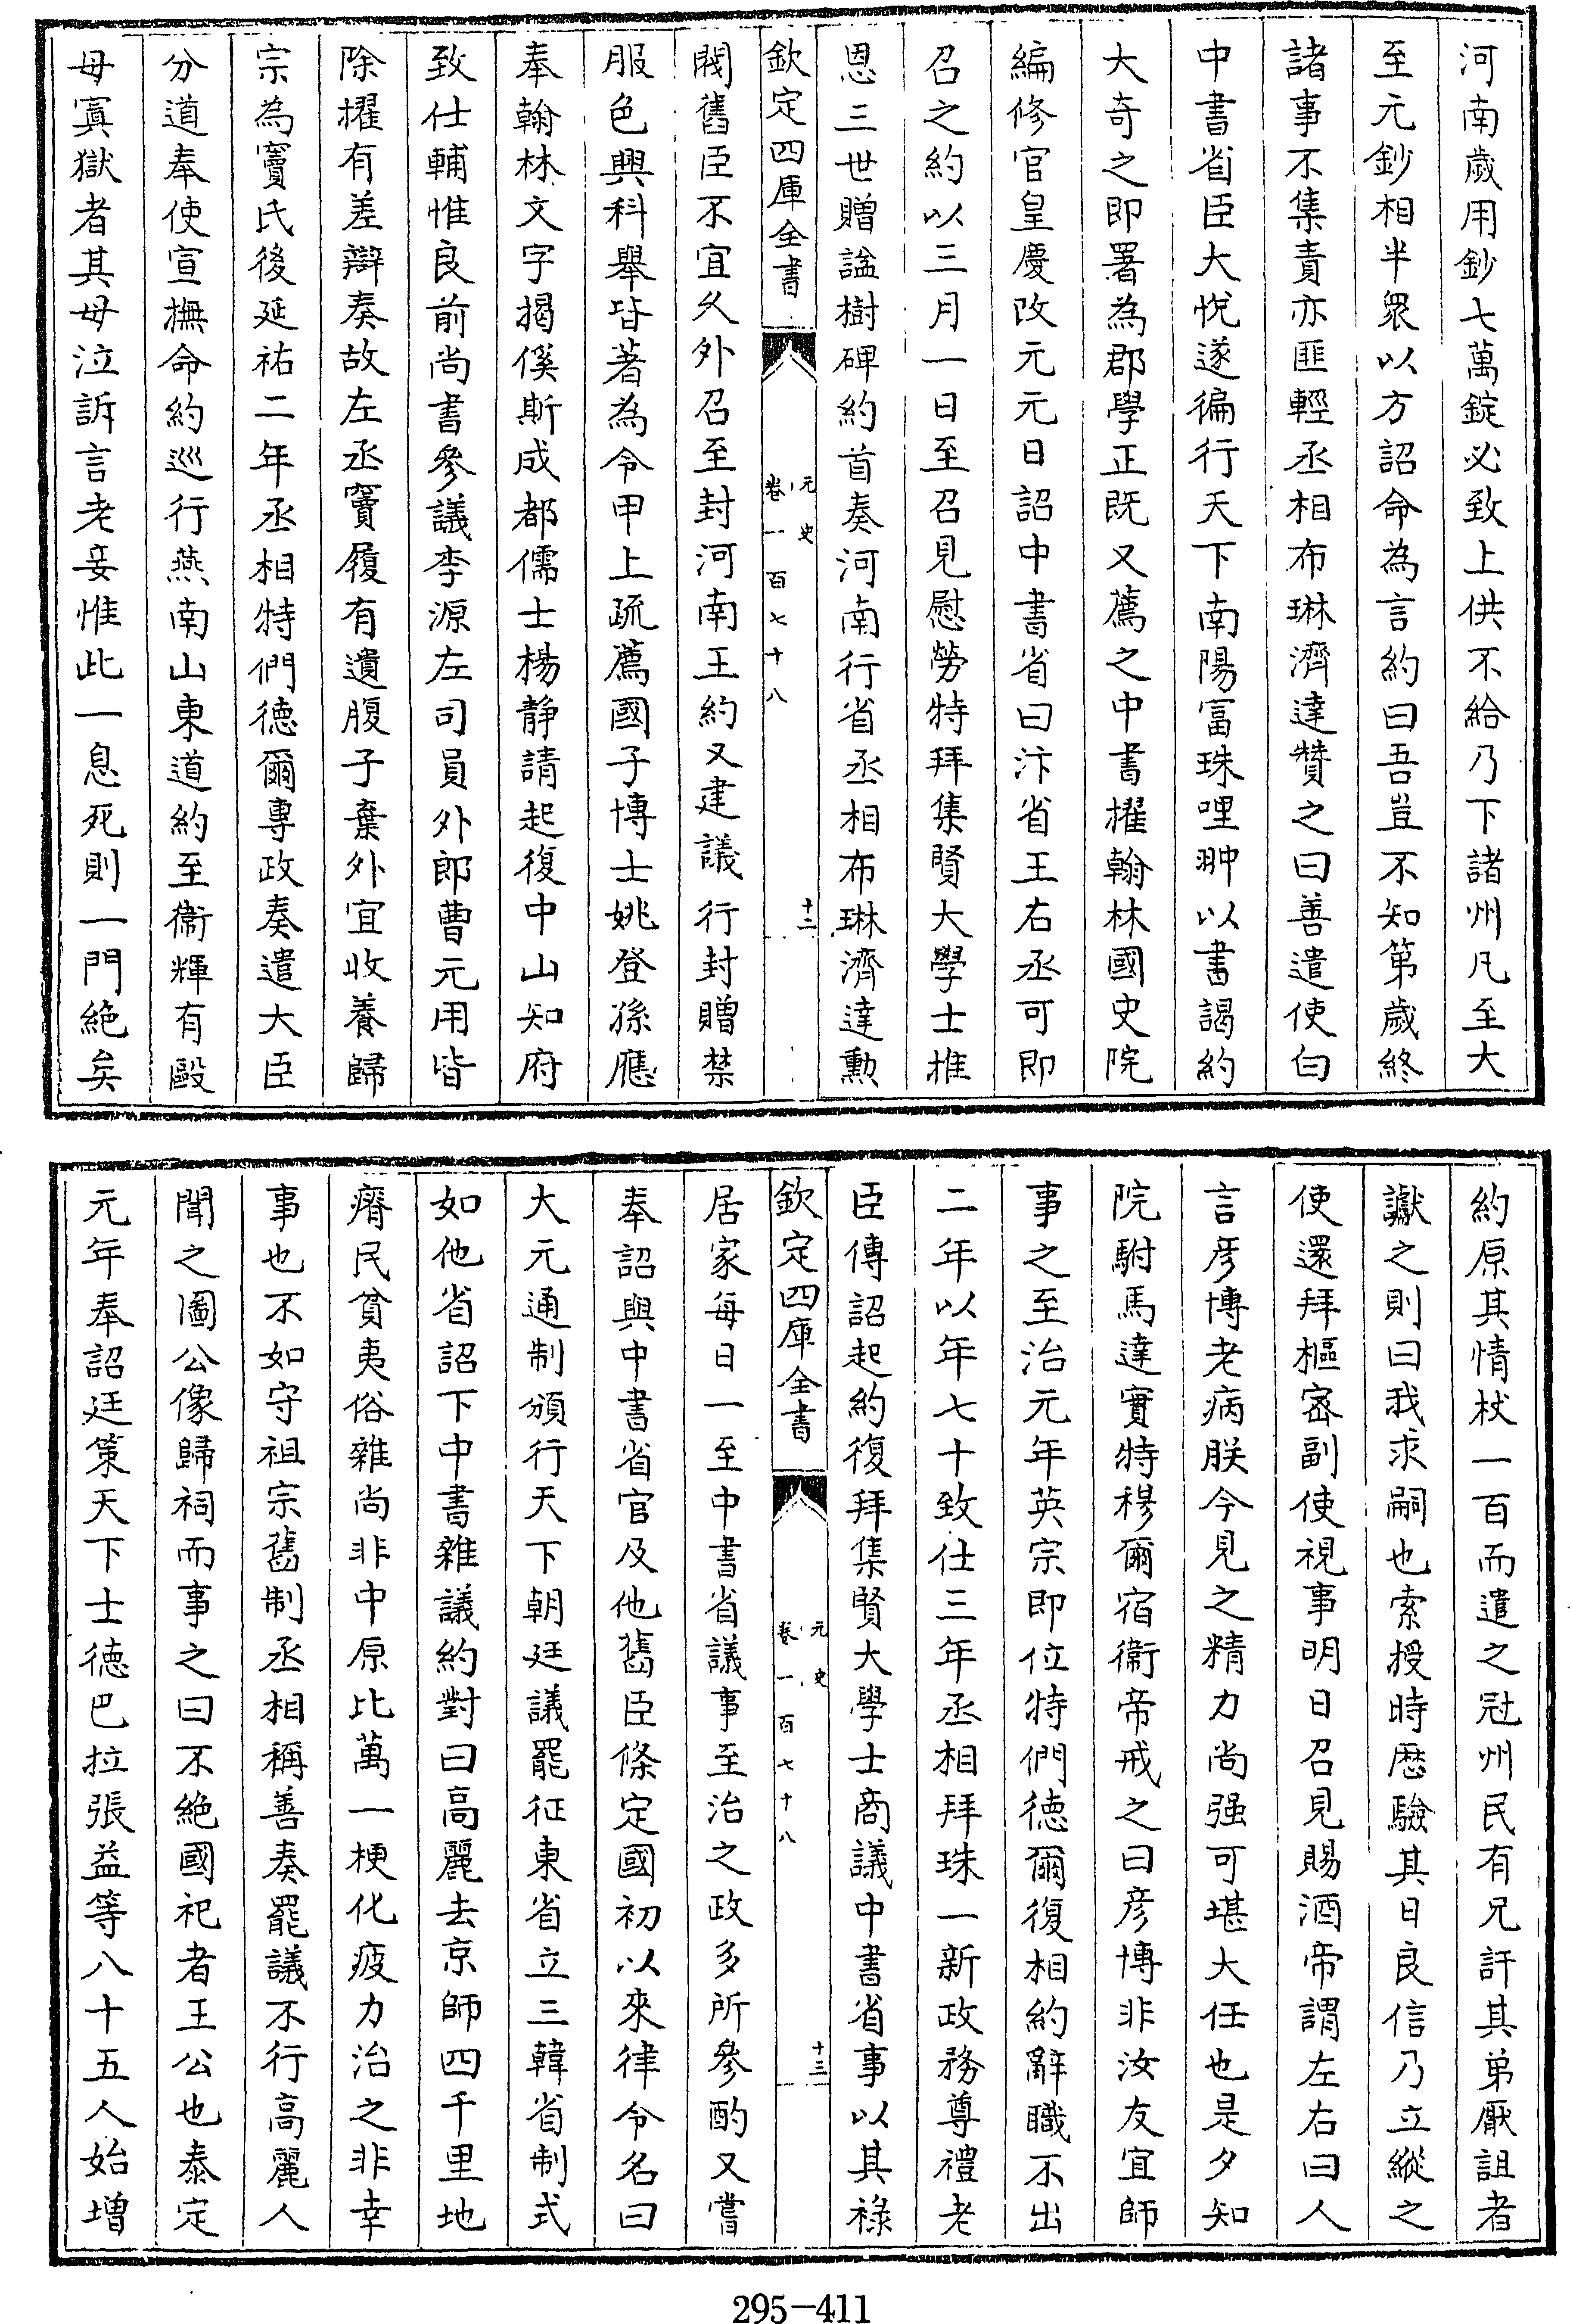 河南歲用鈔七萬錠必致上供不給乃下諸州凡至大
至元鈔相半眾以方詔命為言約曰吾豈不知第歲終
諸事不集責亦匪輕丞相布琳濟達贊之曰善遣使白
中書省臣大悅遂徧行天下南陽富珠哩翀以書謁約
大奇之即署為郡學正既又薦之中書擢翰林國史院
編修官皇慶改元元日詔中書省曰汴省王右丞可即
召之約以三月一日至召見慰勞特拜集賢大學士推
恩三世贈諡樹碑約首奏河南行省丞相布琳濟達勲
欽定四庫全書
元史
卷一百七十八
十二
閥舊臣不宜久外召至封河南王約又建議行封贈禁
服色興科舉皆著為令甲上疏薦國子博士姚登孫應
奉翰林文字揭傒斯成都儒士楊靜請起復中山知府
致仕輔惟良前尚書參議李源左司員外郎曹元用皆
除擢有差辯奏故左丞竇履有遺腹子棄外宜收養歸
宗為竇氏後延祐二年丞相特們德爾專政奏遣大臣
分道奉使宣撫命約巡行燕南山東道約至衞輝有毆
母寘獄者其母泣訴言老妾惟此一息死則一門絕矣
約原其情杖一百而遣之冠州民有兄訐其弟厭詛者
讞之則曰我求嗣也索授時厯驗其日良信乃立縱之
使還拜樞密副使視事明日召見賜酒帝謂左右曰人
言彦博老病朕今見之精力尚强可堪大任也是夕知
院駙馬達實特穆爾宿衞帝戒之曰彦博非汝友宜師
事之至治元年英宗即位特們德爾復相約辭職不出
二年以年七十致仕三年丞相拜珠一新政務尊禮老
臣傳詔起約復拜集賢大學士商議中書省事以其祿
欽定四庫全書
元史
卷一百七十八
十三
居家每日一至中書省議事至治之政多所參酌又嘗
奉詔與中書省官及他舊臣條定國初以來律令名曰
大元通制頒行天下朝廷議罷征東省立三韓省制式
如他省詔下中書雜議約對曰高麗去京師四千里地
瘠民貧夷俗雜尚非中原比萬一梗化疲力治之非幸
事也不如守祖宗舊制丞相稱善奏罷議不行高麗人
聞之圖公像歸祠而事之曰不絕國祀者王公也泰定
元年奉詔廷策天下士德巴拉張益等八十五人始增
295-411